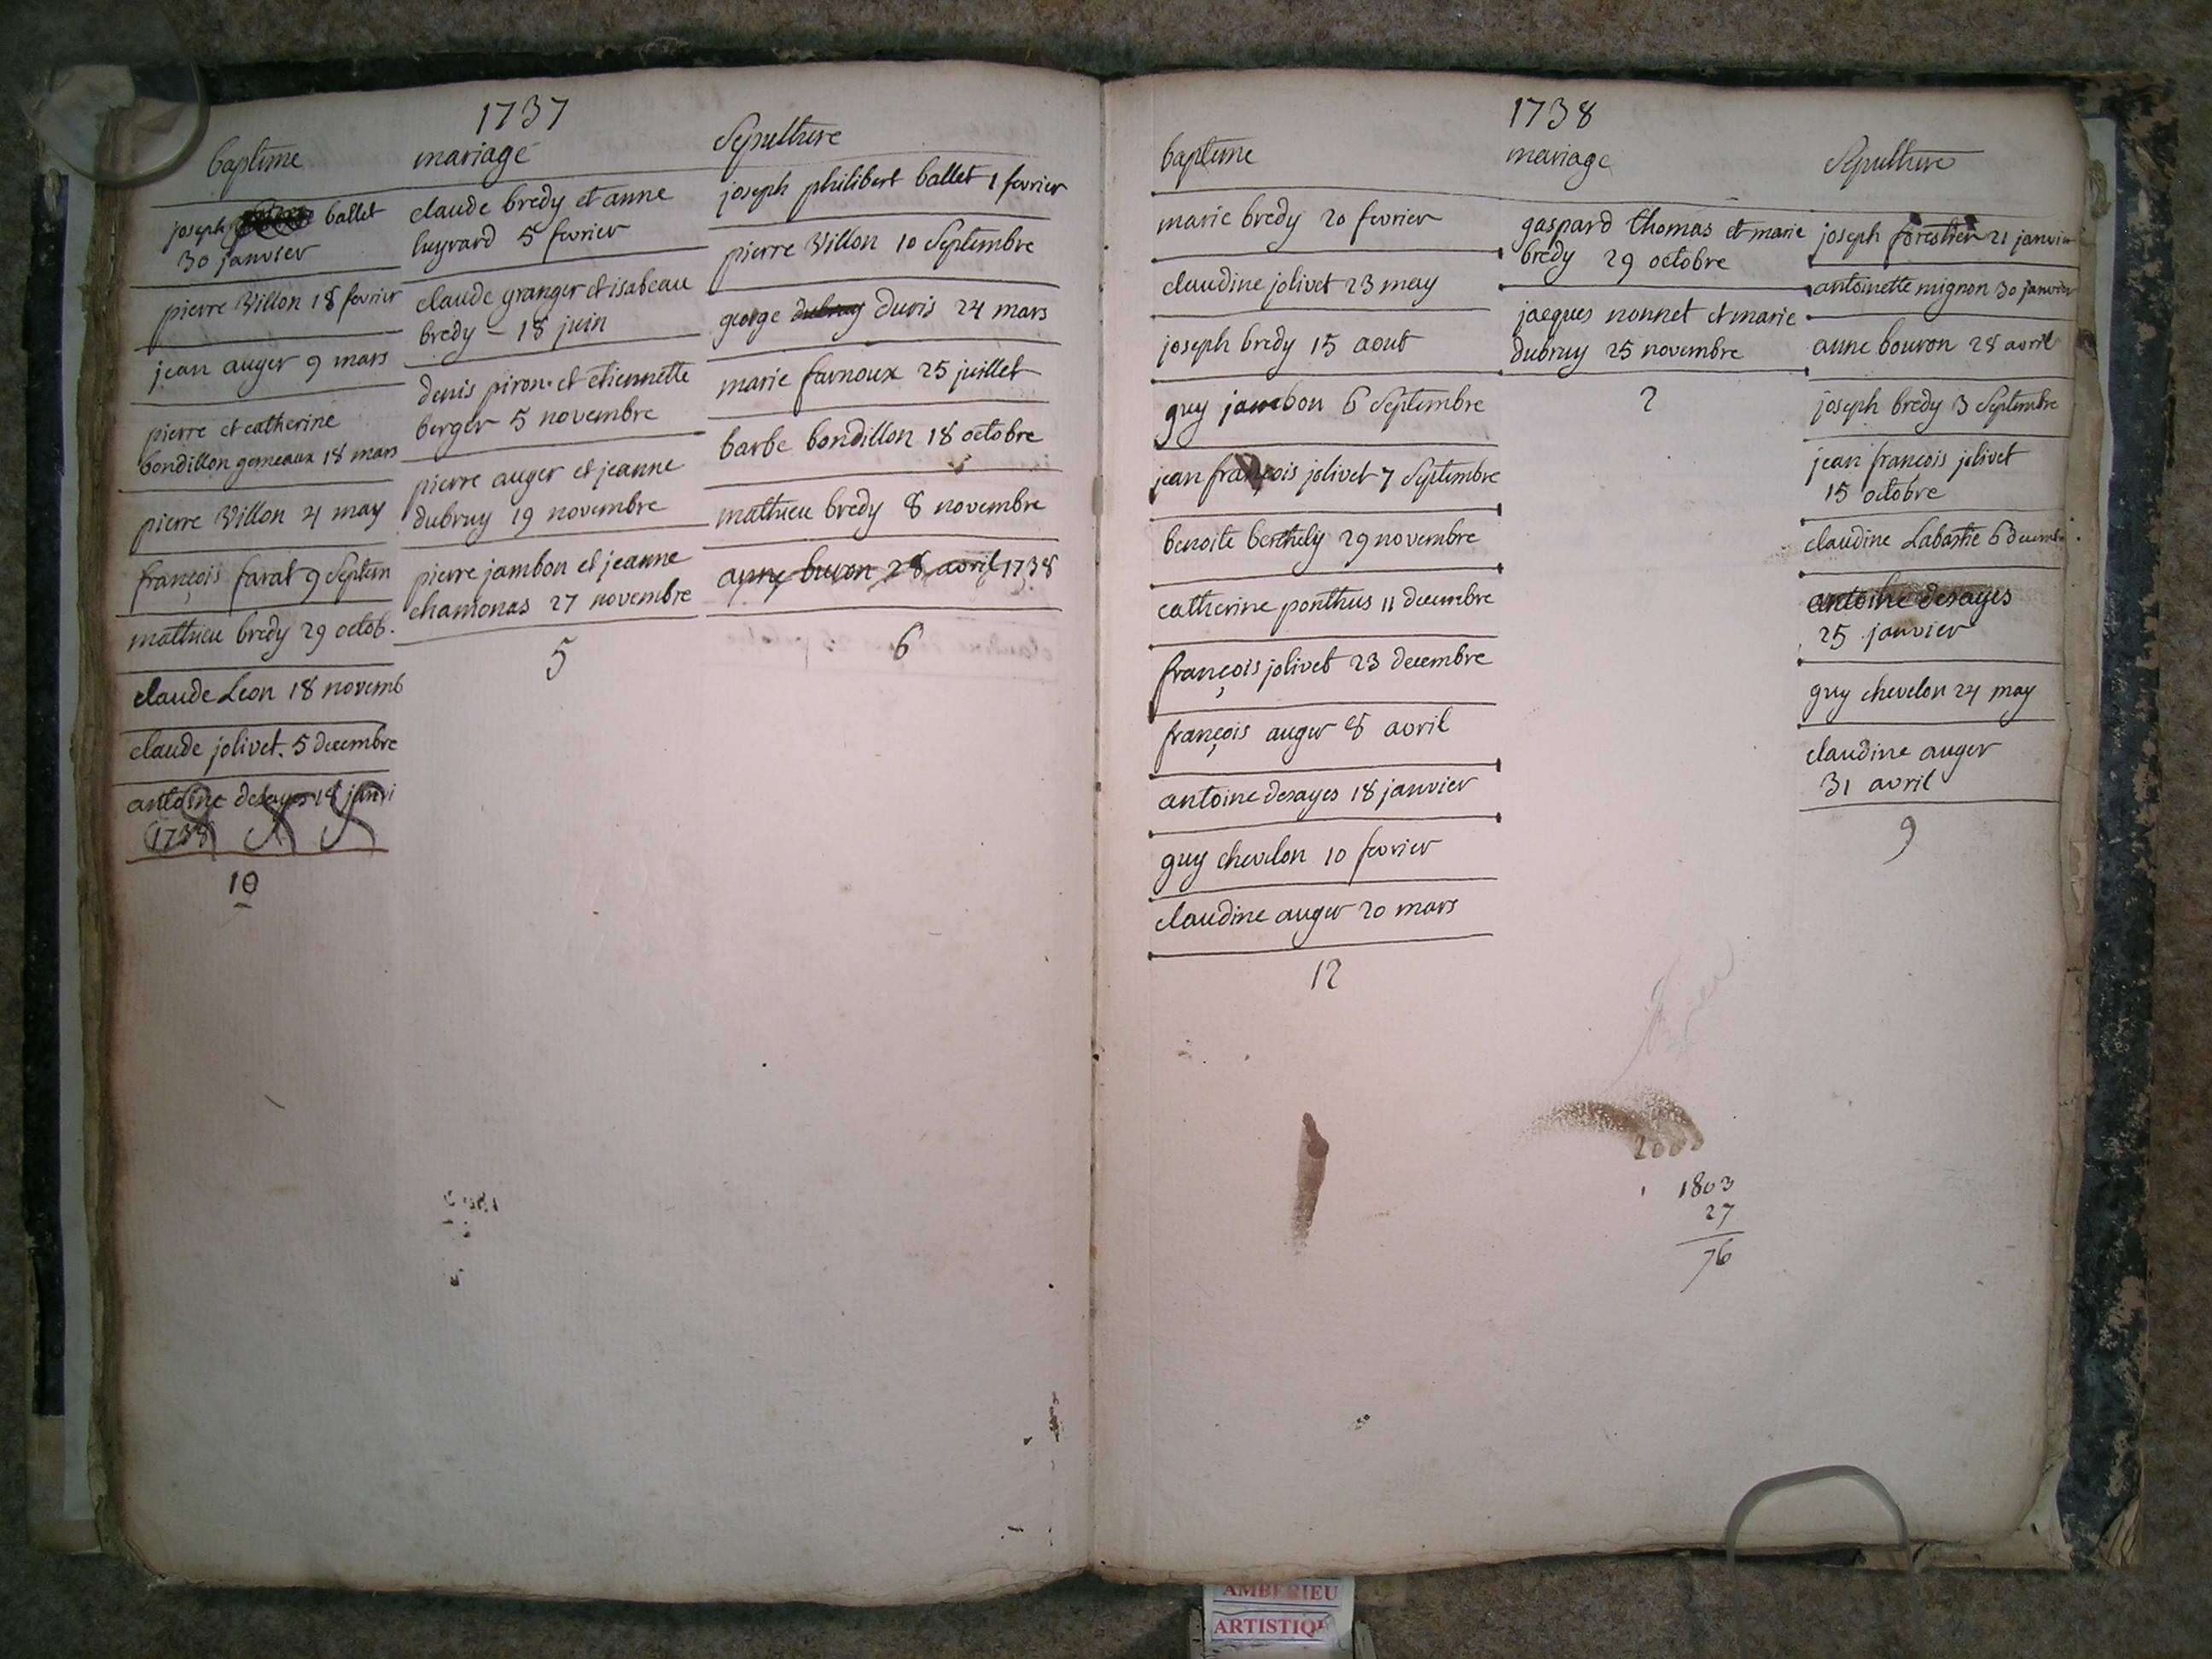 1737
bapteme
joseph ballet
30 janvier
pierre Villon 18 fevrier
jean auger 9 mars
pierre et catherine
bondillon gemeaux 18 mars
pierre Villon 4 may
françois farat 9 Septem
mathieu bredy 29 octob.
claude Leon 18 novemb
claude jolivet. 5 decembre
antoine desayes 18 janvi
1738
10
mariage
claude bredy et anne
5 fevrier
claude granger et isabeau
bredy - 18 juin
denis piron et etiennette
berger 5 novembre
pierre auger et jeanne
dubruy 19 novembre
pierre jambon et jeanne
chamonas 27 novembre
5
Sepulture
joseph philibert ballet 1 fevrier
pierre Villon 10 Septembre
george dubruy duris 24 mars
marie farnoux 25 juillet
barbe bondillon 18 octobre
mathieu bredy 8 novembre
anne buron 28 avril 1738
6
1738
bapteme
marie bredy 20 fevrier
claudine jolivet 23 may
joseph bredy 15 aout
guy jambon 6 Septembre
jean françois jolivet 7 Septembre
benoite berthely 29 novembre
catherine ponthus 11 decembre
françois jolivet 23 decembre
françois auger 8 avril
antoine desayes 18 janvier
guy chevelon 10 fevrier
claudine auger 20 mars
12
mariage
gaspard thomas et marie
bredy 29 octobre
jacques nonnet et marie
dubruy 25 novembre
2
Sepulture
joseph forestier 21 janvier
antoinette mignon 30 janvier
anne bouron 28 avril
joseph bredy 3 Septembre
jean françois jolivet
15 octobre
claudine Labastie 6 decemb
antoine desayes
25 janvier
guy chevelon 24 may
claudine auger
31 avril
9
1803
27
76
AMBERIEU
ARTISTIQ